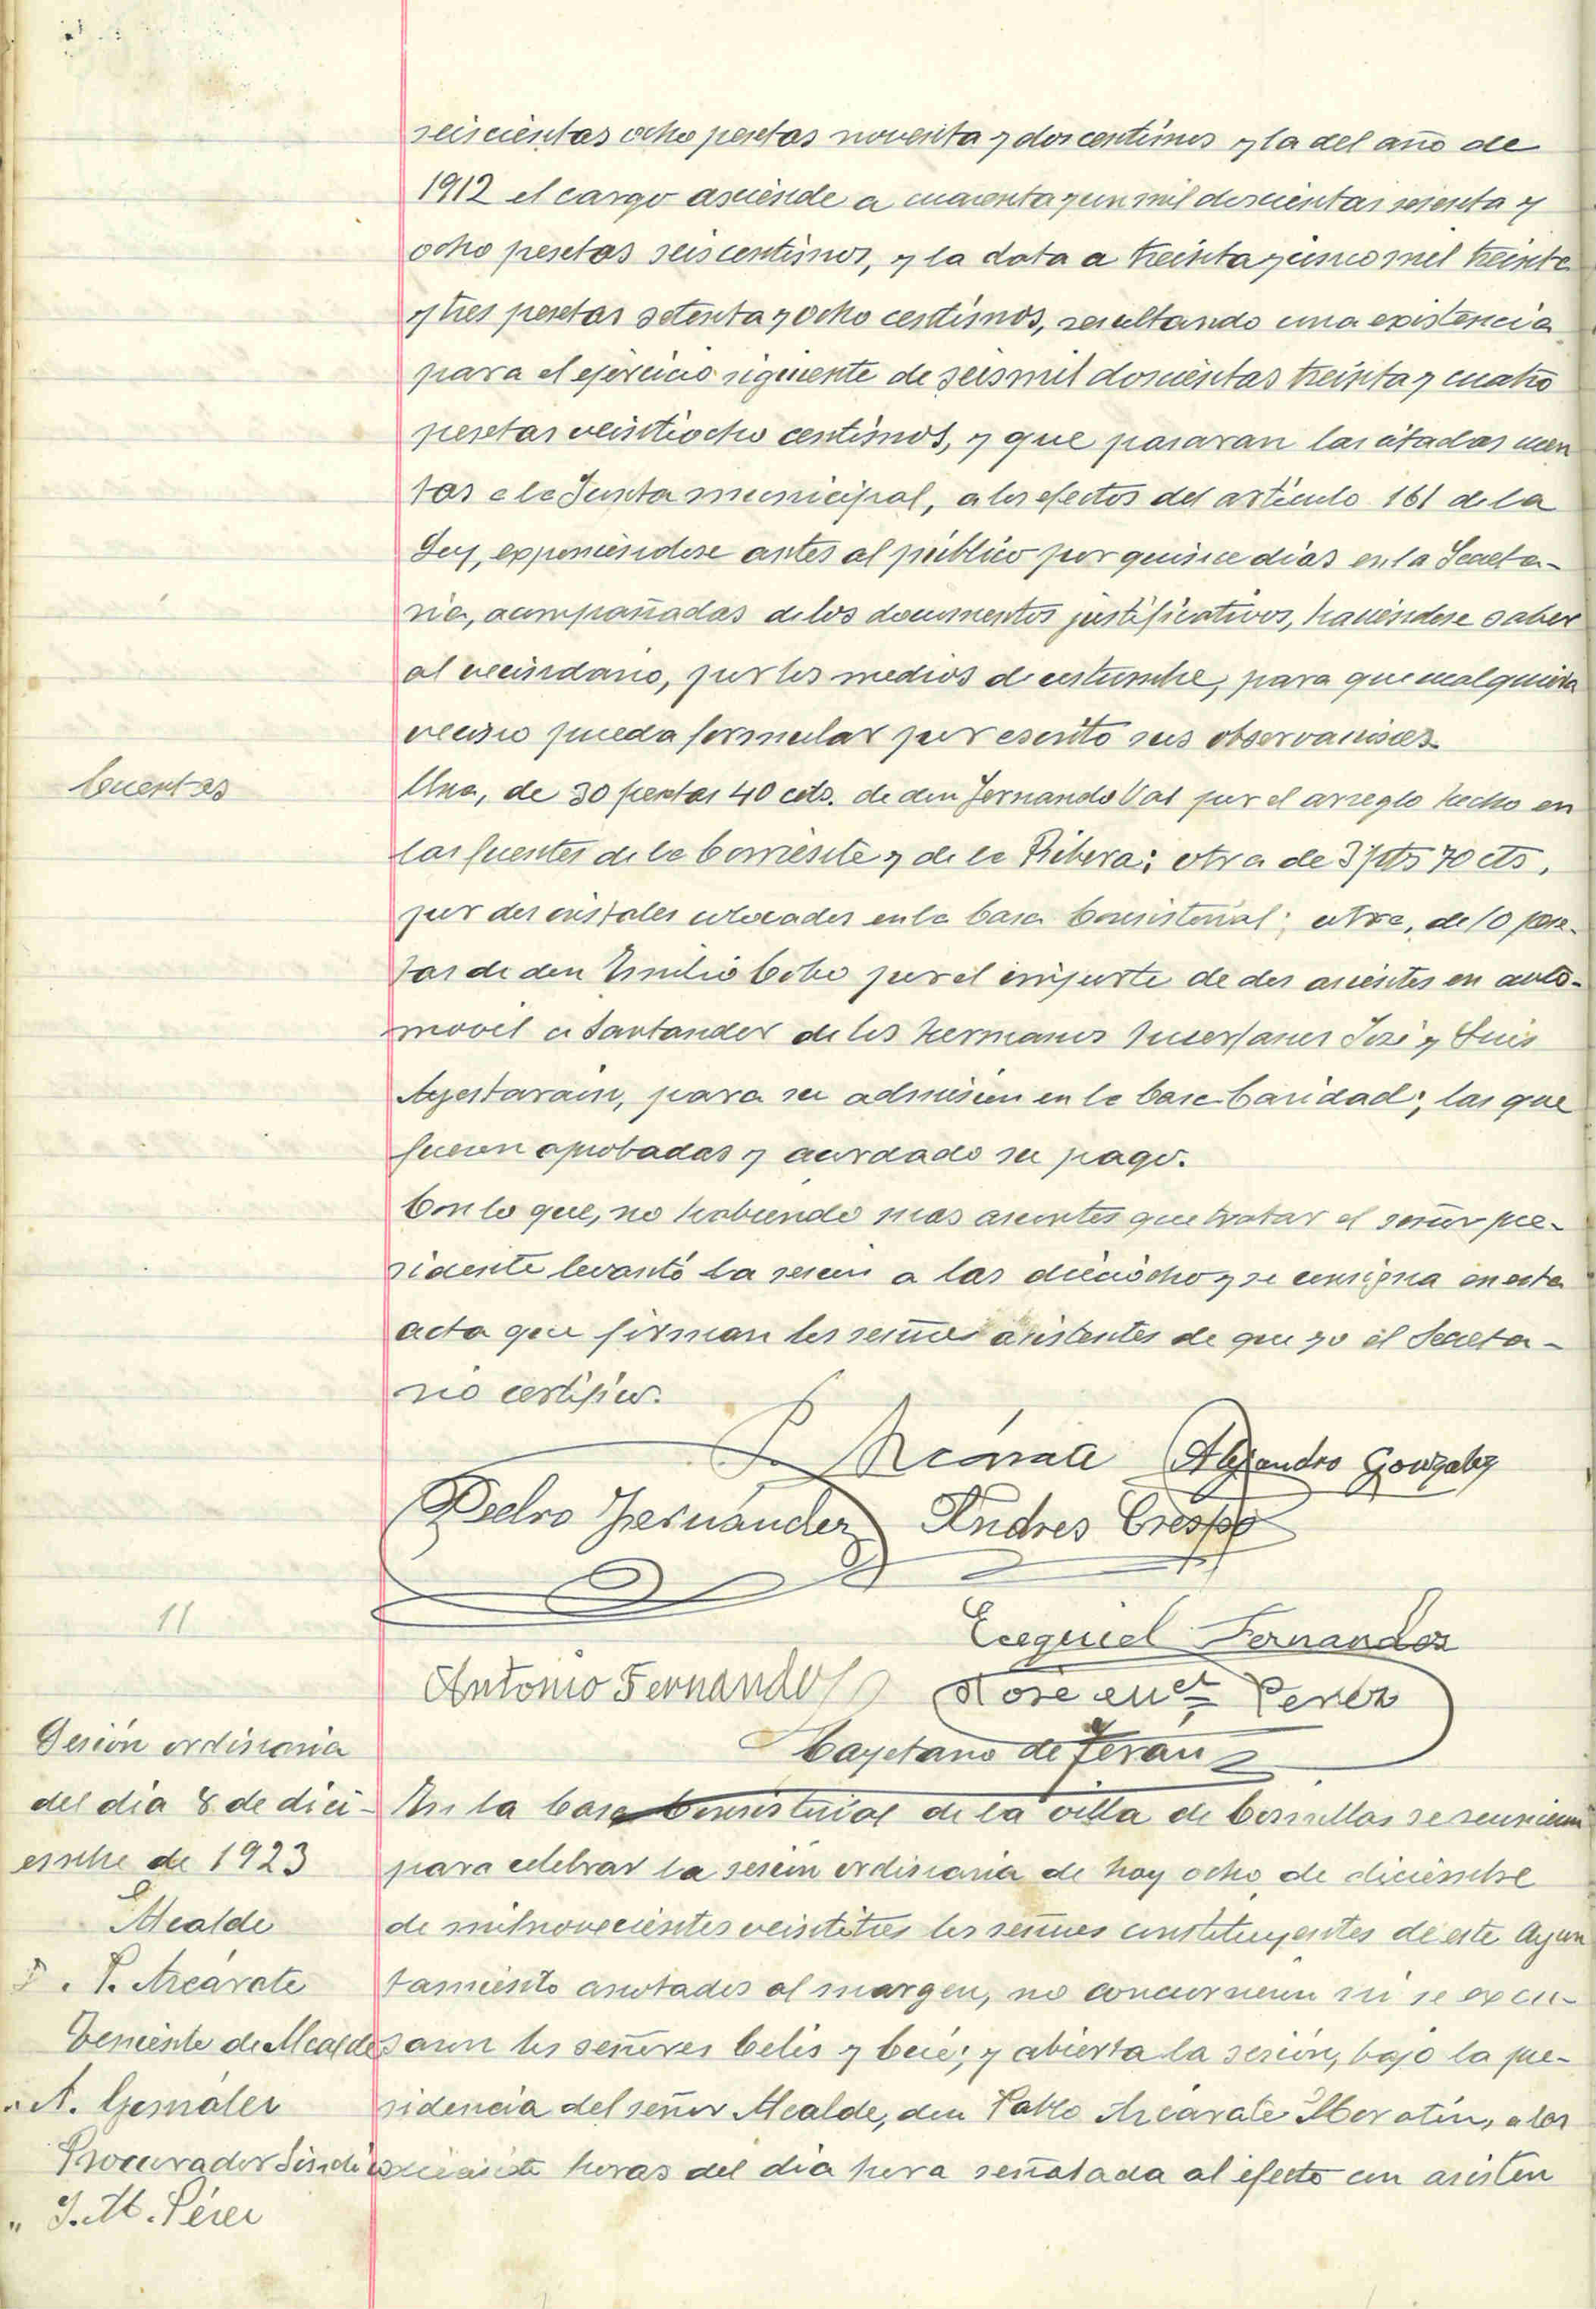 seiscientas ocho pesetas noventa y dos centimos y la del año de
1912 el cargo asciende a cuarenta y un mil doscientas sesenta y
ocho pesetas seis centimos, y la data a treinta y cinco mil treinta
y tres pesetas setenta y ocho centimos, resultando una existencia
para el ejercicio siguiente de seis mil doscientas treinta y cuatro
pesetas veintiocho centimos, y que pasaran las citadas cuen
tas a la Junta municipal, a los efectos del articulo 161 de la
Ley, exponiendose antes al público por quince dias en la Secreta-
ria, acompañadas de los documentos justificativos, haciendose saber
al vecindario, por los medios de costumbre, para que cualquiera
vecino pueda formular por escrito sus observaciones.
Cuentas
Una, de 30 pesetas 40 cts. de don Fernando Val por el arreglo hecho en
las fuentes de la Corriente y de la Ribera; otra de 3 pts 70 cts,
por dos cristales colocados en la Casa Consistorial; otra, de 10 pese-
tas de don Emilio Cobo por el importe de dos asientos en auto-
movil a Santander de los hermanos huerfanos José y Luis
Ayestarain, para su admision en la Casa Caridad; las que
fueron aprobadas y acordado su pago.
Con lo que, no habiendo mas asuntos que tratar el señor pre-
sidente levantó la sesion a las dieciocho y se consigna en esta
acta que firman los señores asistentes de que yo el Secreta-
rio certifico.
P. Azcárate Alejandro Gonzalez
Pedro Fernández Andres Crespo
11
Ecequiel Fernandez
Antonio Fernandez Jose Perez
Cayetano de Teran
Sesión ordinaria
del dia 8 de dici-
embre de 1923
Alcalde
D. P. Azcárate
Teniente de Alcalde
" A. Gonzáler
Procurador Sindico
" J. M. Pérez
En la Casa Consistorial de la villa de Comillas se reunieron
para celebrar la sesion ordinaria de hoy ocho de diciembre
de mil novecientos veintitres los señores constituyentes de este Ayun
tamiento anotados al margen, no concurrieron ni se excu-
saron los señores Celis y ; y abierta la sesión, bajo la pre-
sidencia del señor Alcalde, don Pablo Azcárate, a las
horas del dia hora señalada al efecto con asisten